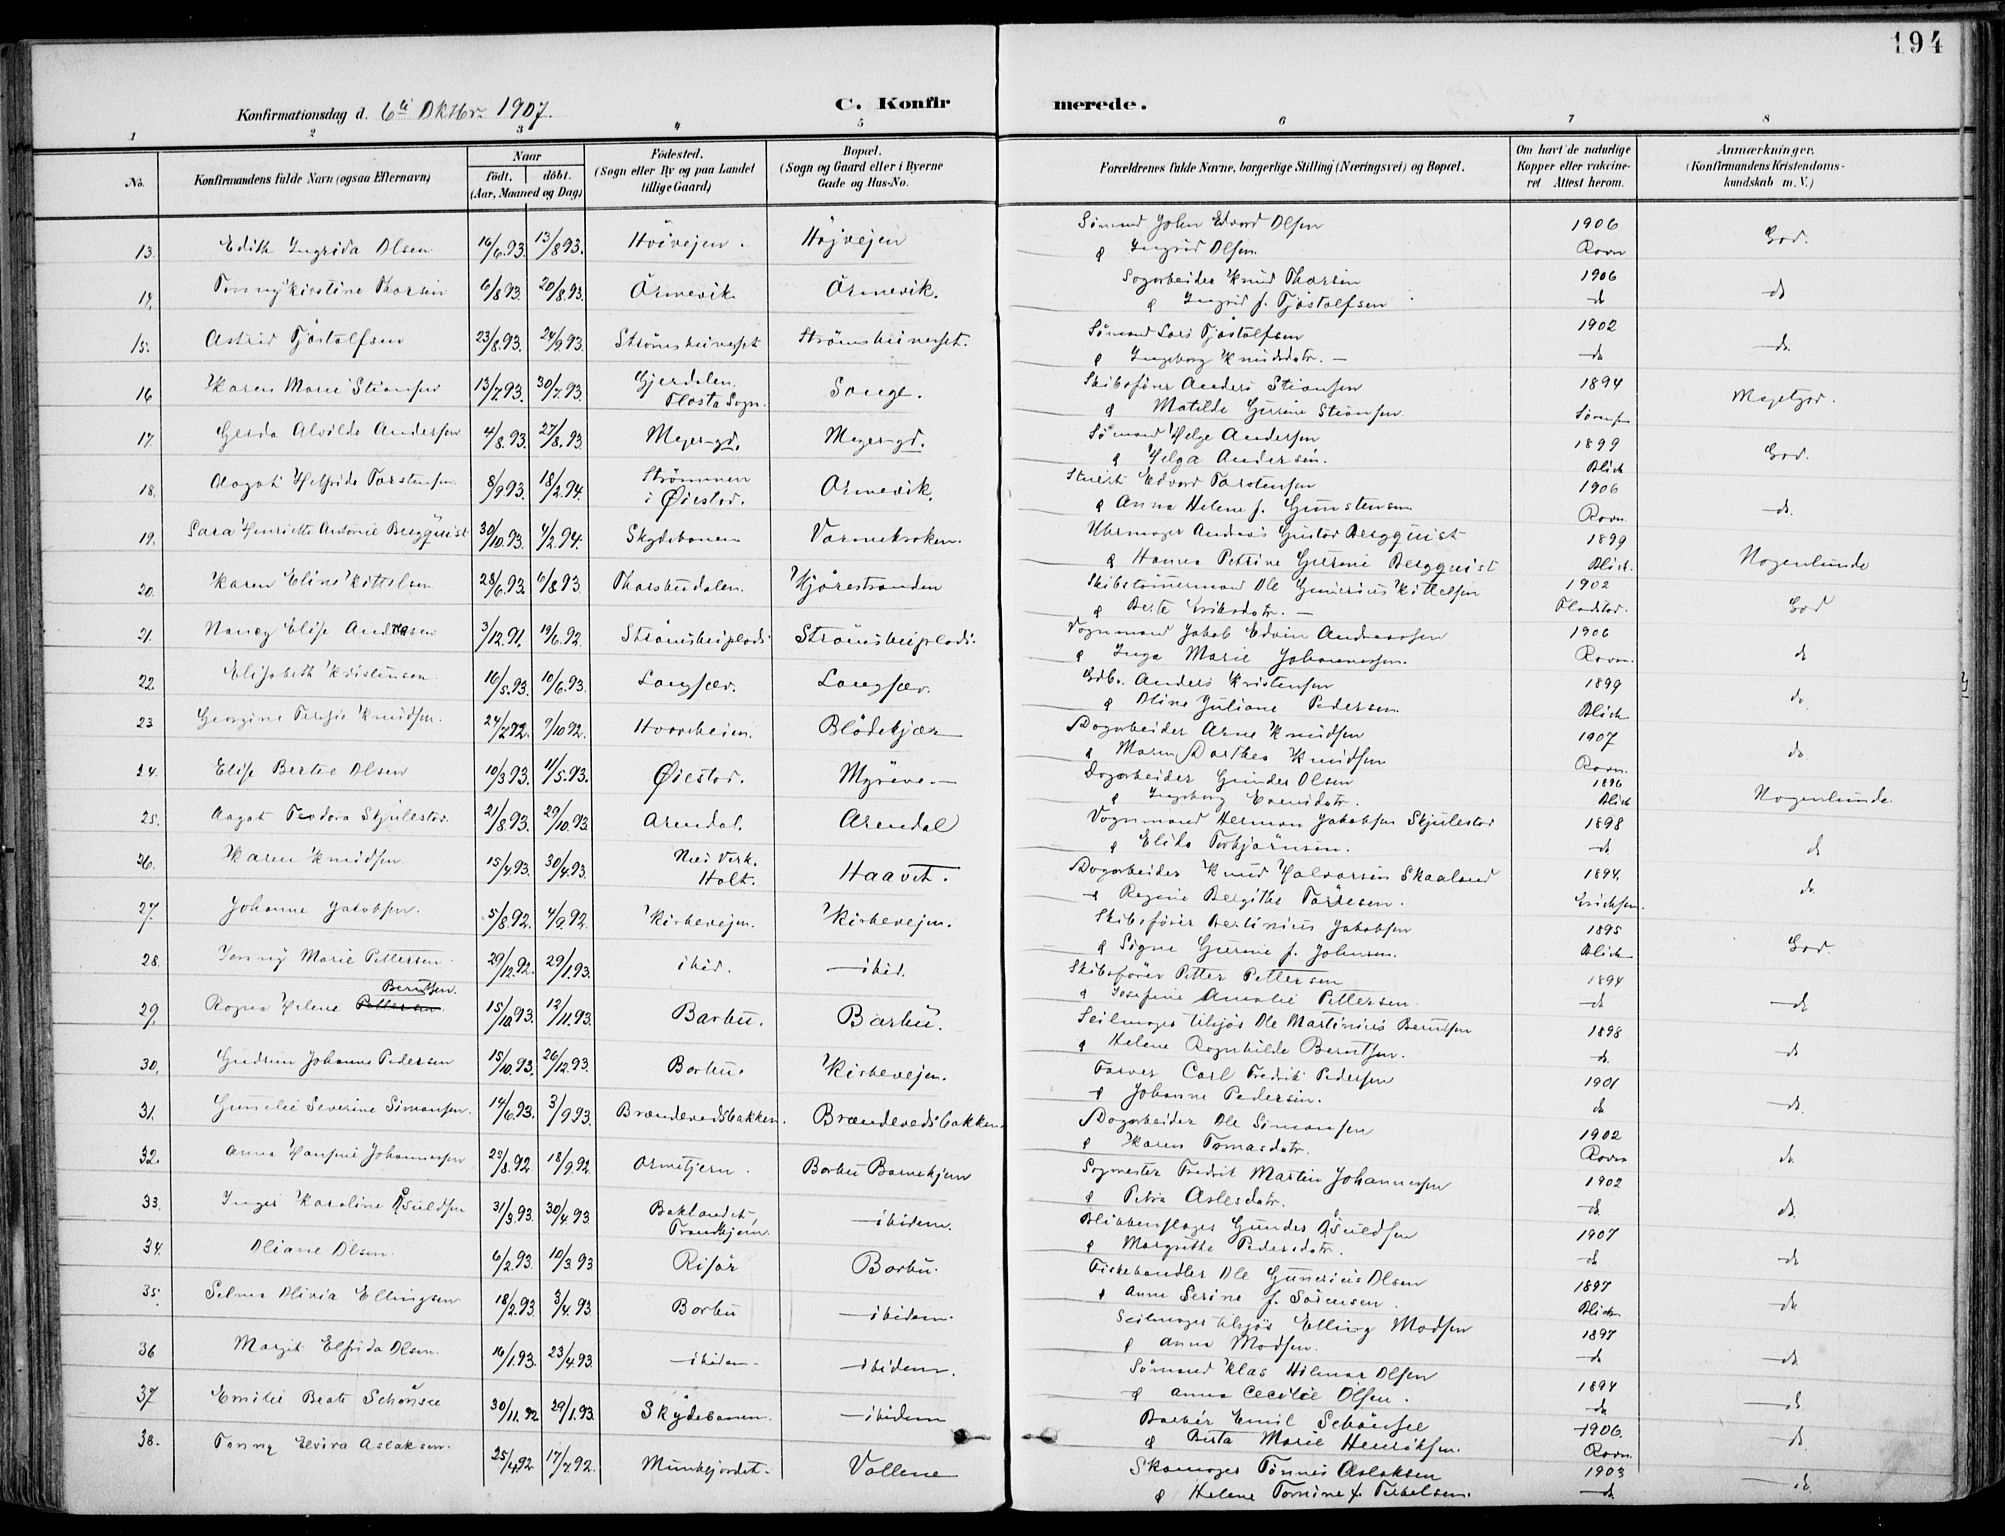 194
Konfirmationsdag d. 6te Oktbr. 1907.
C. Konfirmerede.
1 2 3 4 5 6 7 8
No.
Konfirmandens fulde Navn (ogsaa Efternavn)
Naar
født. døbt.
(Aar, Maaned og Dag)
Fødested.
(Sogn eller By og paa Landet
tillige Gaard)
Bopæl.
(Sogn og Gaard eller i Byerne
Gade og Hus-No.
Forældrenes fulde Navne, borgerlige Stilling (Næringsvei) og Bopæl.
Om havt de naturlige
Kopper eller vakcine-
ret Attest herom.
Anmærkninger.
(Konfirmandens Kristendoms-
kundskab m. V.)
13. Edith Ingrida Olsen 16/6.93. 13/8 93. Höivejen. Höjvejen Sømand John Edvard Olsen 1906 God.
& Ingrid Olsen Rovn
14. Tonny Kirstine Thorsen 6/8 93. 20/8.93. Örmevik Örmevik. Sagarbeider Knud Thorsen 1906 do
& Ingrid f. Tjöstolfsen do
15. Astrid Tjöstolfsen 23/8.93. 24/9.93. Strömsbuneset Strömsbuneset. Sömand Lars Tjöstolfsen 1902 do.
& Ingeborg Knudsdatr. do
16 Karen Marie Stiansen 13/7.93. 30/7.93. Gjerdalen, Songe. Skibsfører Anders Stiansen 1894 Megetgod.
Flosta Sogn. & Matilde Gurine Stiansen
17. Gerda Alvilde Andersen 4/8.93. 27/8.93. Meyer-gd. Meyer-gd. Sømand Helge Andersen 1899 God.
& Helga Andersen. Blich
18. Aagot Helfride Torstensen 8/9 93. 18/2.94. Strömmen Örmevik. Stuert Edvard Torstensen 1906 do.
i Øiestad. & Anna Helene f. Gunstensen Rovn
19. Sara Henriette Antonie Bergquist 30/10.93. 4/2.94. Skydebanen Varmekroken. Uhrmager Andreas Gustav Bergquist 1899 Nogenlunde
& Hanna Petrine Gurine Bergquist Blich.
20. Karen Eline Kittelsen 28/6.93. 6/8 93. Thorsbudalen. Kjørestranden Skibstømmermand Ole Gunerius Kittelsen 1902 God
& Berte Eriksdatr.
21. Nancy Elise Andreasen 3/12.91. 19/6.92. Strömsbuplads Strömsbuplads. Vognmand Jakob Edvin Andreassen 1906 do
& Inga Marie Johannessen. Rovn.
22. Elisabeth Kristensen 16/5.93. 10/6.93. Langsæv. Langsæv. Gdb. Anders Kristensen 1899 do.
& Oline Juliane Pedersen Blich
23 Georgine Teresie Knudsen. 24/7.92. 9/10 92. Blödekjær Dagarbeider Arne Knudsen 1907 do
& Maren Dorthea Knudsen Rovn.
24. Elise Bertee Olsen 10/3 93. 11/5.93. Øiestad. Myrene. Dagarbeider Gunder Olsen 1896 Nogenlunde.
& Ingeborg Evensdatr. Blich
25. Aagot Teodora Skjulestad. 21/8.93. 29/10.93 Arendal. Arendal Vognmand Herman Jakobsen Skjulestad 1898 do
& Elida Torbjörnsen. do
26. Karen Knudsen 15/4.93. 30/4.93. Næs Verk. Haavet. Dagarbeider Knud Halvorsen Skaaland 1894. do
Holt. & Regine Bergithe Tørresen. Erichsen.
27 Johanne Jakobsen. 5/8.92. 4/9.92. Kirkevejen. Kirkevejen. Skibsfører Bertinius Jakobsen 1895 God.
& Signe Gurine f. Johnsen. Blich
28. Jenny Marie Pettersen. 29/12.92. 29/1.93. ibid. ibid. Skibsfører Petter Pettersen 1894 do
& Josefine Amalie Pettersen do
29. Ragna Helene Pettersen Berntsen. 15/10.93. 12/11.93. Barbu. Barbu. Seilmager tilsjös Ole Martinius Berntsen 1898 do
& Helene Ragnhilde Berntsen. do
30. Gudrun Johanne Pedersen 15/10.93. 26/12.93. Barbu. Kirkevejen. Farver Carl Fredrik Pedersen 1901 do.
& Johanne Pedersen. do
31. Gunelie Severine Simonsen. 14/6.93. 3/9 93. Brændevedsbakken. Brændevedsbakken. Dagarbeider Ole Simonsen 1902 do
& Karen Tomasdatr. Rovn
32. Anna Hansine Johannessen 25/8.92 18/9 92. Ormetjern. Barbu Barnehjem Sagmester Fredrik Martin Johannessen 1902 do.
& Petra Aslesdatr. do.
33. Inger Karoline Åsuldsen 31/3.93. 30/4.93. Baklandet, ibidem. Blikkenslager Gunder Åsuldsen 1907 do
Trondhjem. & Margrethe Pedersdatr. do
34. Oliane Olsen 6/2.93. 10/3.93 Risør Barbu. Fiskehandler Ole Gunerius Olsen 1897 do
& Anne Serine f. Sörensen. Blich
35. Selma Olivia Ellingsen 18/2.93. 3/4.93 Barbu ibidem. Seilmager tilsjös Elling Madsen 1897 do.
& Anna Madsen. do
36 Margit Elfrida Olsen. 16/1.93. 23/4.93. ibidem. ibidem. Sömand Klas Hilmar Olsen 1894 do
& Anna Cecilie Olsen. do
37 Emilie Beate Schönsee 30/11.92 29/1.93. Skydebanen. ibidem Barbér Emil Schönsee 1906. do.
& Berta Marie Henriksen. Rovn.
38. Tonny Elvira Aslaksen. 25/4.92. 17/7.92. Munkejordet. Vollene Skomager Tönnes Aslaksen 1903 do.
& Helene Tomine f. Terkelsen. do.